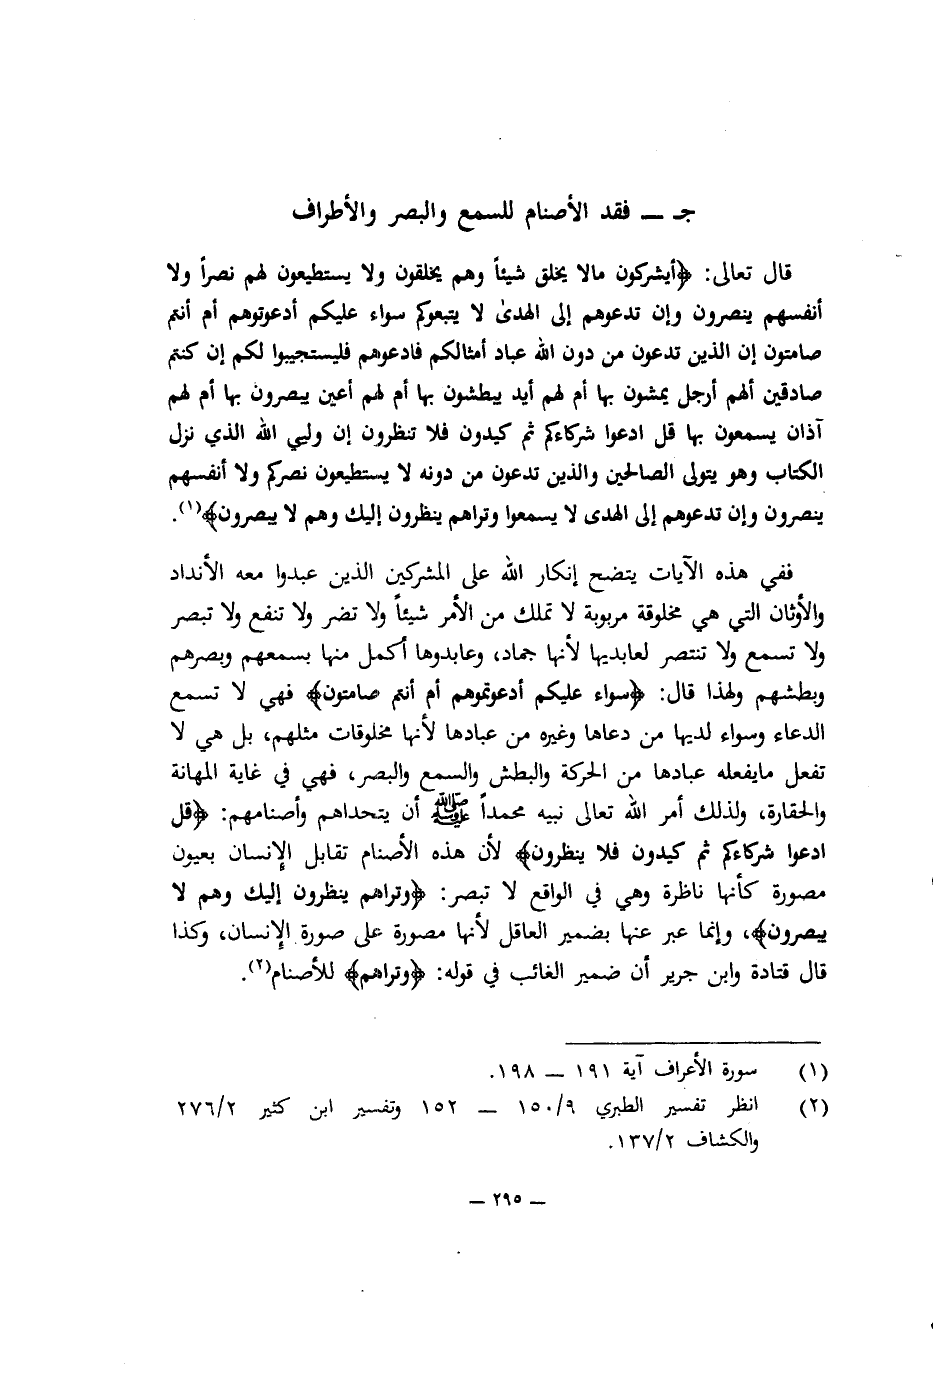 جـ ــ فقد الأصنام للسمع والبصر والأطراف
قال تعالى: ﴿أيشركون مالا يخلق شيئاً وهم يخلقون ولا يستطيعون لهم نصراً ولا
أنفسهم ينصرون وإن تدعوهم إلى الهدىٰ لا يتبعوكم سواء عليكم أدعوتوهم أم أنتم
صامتون إن الذين تدعون من دون الله عباد أمثالكم فادعوهم فليستجيبوا لكم إن كنتم
صادقين ألهم أرجل يمشون بها أم لهم أيد يبطشون بها أم لهم أعين يبصرون بها أم لهم
آذان يسمعون بها قل ادعوا شركاءكم ثم كيدون فلا تنظرون إن وليي الله الذي نزل
الكتاب وهو يتولى الصالحين والذين تدعون من دونه لا يستطيعون نصركم ولا أنفسهم
ينصرون وإن تدعوهم إلى الهدى لا يسمعوا وتراهم ينظرون إليك وهم لا يبصرون﴾(١).
ففي هذه الآيات يتضح إنكار الله على المشركين الذين عبدوا معه الأنداد
والأوثان التي هي مخلوقة مربوبة لا تملك من الأمر شيئاً ولا تضر ولا تنفع ولا تبصر
ولا تسمع ولا تنتصر لعابديها لأنها جماد، وعابدوها أكمل منها بسمعهم وبصرهم
وبطشهم ولهذا قال: ﴿سواء عليكم أدعوتموهم أم أنتم صامتون﴾ فهي لا تسمع
الدعاء وسواء لديها من دعاها وغيره من عبادها لأنها مخلوقات مثلهم، بل هي لا
تفعل مايفعله عبادها من الحركة والبطش والسمع والبصر، فهي في غاية المهانة
والحقارة، ولذلك أمر الله تعالى نبيه محمداً ﷺ أن يتحداهم وأصنامهم: ﴿قل
ادعوا شركاءكم ثم كيدون فلا ينظرون﴾ لأن هذه الأصنام تقابل الإنسان بعيون
مصورة كأنها ناظرة وهي في الواقع لا تبصر: ﴿وتراهم ينظرون إليك وهم لا
يبصرون﴾، وإنما عبر عنها بضمير العاقل لأنها مصورة على صورة الإنسان، وكذا
قال قتادة وابن جرير أن ضمير الغائب في قوله: ﴿وتراهم﴾ للأصنام(٢).
(١) سورة الأعراف آية ١٩١ ــ ١٩٨.
(٢) انظر تفسير الطبري ١٥٠/٩ ــ ١٥٢ وتفسير ابن كثير ٢٧٦/٢
والكشاف ١٣٧/٢.
ــ ٢٩٥ ــ